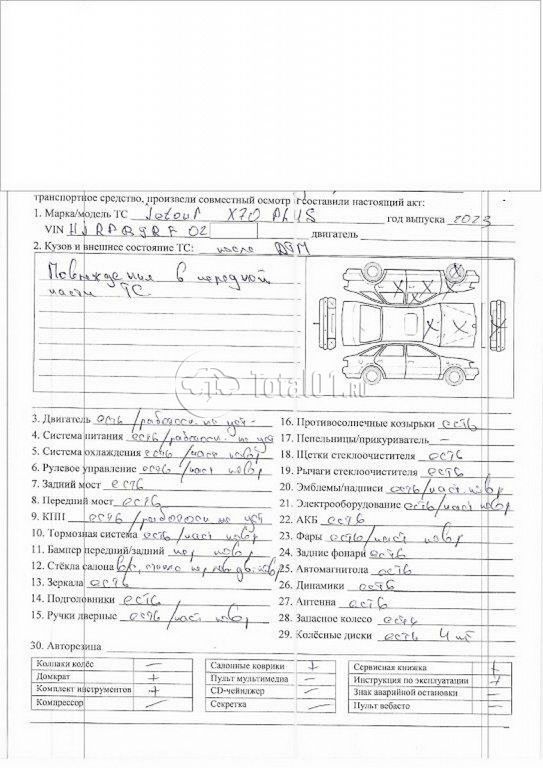 транспортное средство, произвели совместный осмотр и составили настоящий акт:
1. Марка/модель ТС Jetour X70 PLUS год выпуска 2023
VIN двигатель
2. Кузов и внешнее состояние ТС: после ДТП
Повреждения в передней
части ТС.
Total01.RU
3. Двигатель есть/работосп. не уст-
4. Система питания есть/работосп. не уст
5. Система охлаждения есть/част повр
6. Рулевое управление есть/част повр
7. Задний мост есть
8. Передний мост есть
9. КПП есть/работосп не уст
10. Тормозная система есть/част повр
11. Бампер передний/задний пер повр
12. Стёкла салона
13. Зеркала есть
14. Подголовники есть
15. Ручки дверные есть/част повр
16. Противосолнечные козырьки есть
17. Пепельницы/прикуриватель –
18. Щетки стеклоочистителя есть
19. Рычаги стеклоочистителя есть
20. Эмблемы/надписи есть/част повр
21. Электрооборудование есть/част повр
22. АКБ есть
23. Фары есть/част повр
24. Задние фонари есть
25. Автомагнитола есть
26. Динамики есть
27. Антенна есть
28. Запасное колесо есть
29. Колёсные диски есть 4 шт
30. Авторезина
Колпаки колёс –
Домкрат +
Комплект инструментов +
Компрессор –
Салонные коврики +
Пульт мультимедиа –
CD-чейнджер –
Секретка –
Сервисная книжка +
Инструкция по эксплуатации +
Знак аварийной остановки –
Пульт вебасто –